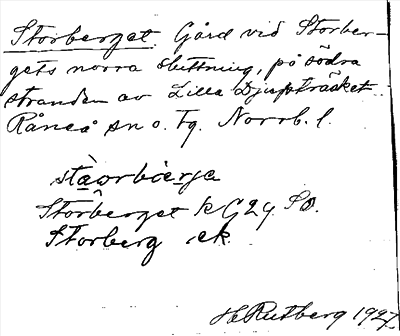 Storberget. Gård vid Storber-
gets norra sluttning, på södra
stranden av Lilla Djupträsket.
Råneå sn o. tg. Norrb. l.
stàorbòerje
Storberget k G24 SO.
Storberg ek.
H Rutberg 1927.